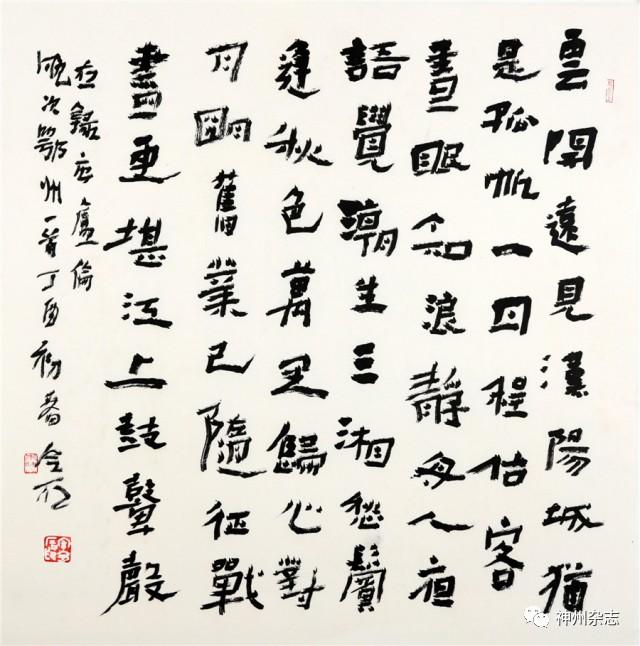 雲開遠見漢陽城猶
是孤帆一日程估客
晝眠知浪靜舟人夜
語覺潮生三湘愁鬢
逢秋色萬里歸心對
月明舊業已隨征戰
盡更堪江上鼓鼙聲
右錄唐盧倫
晚次鄂州一首丁酉初春
神州杂志